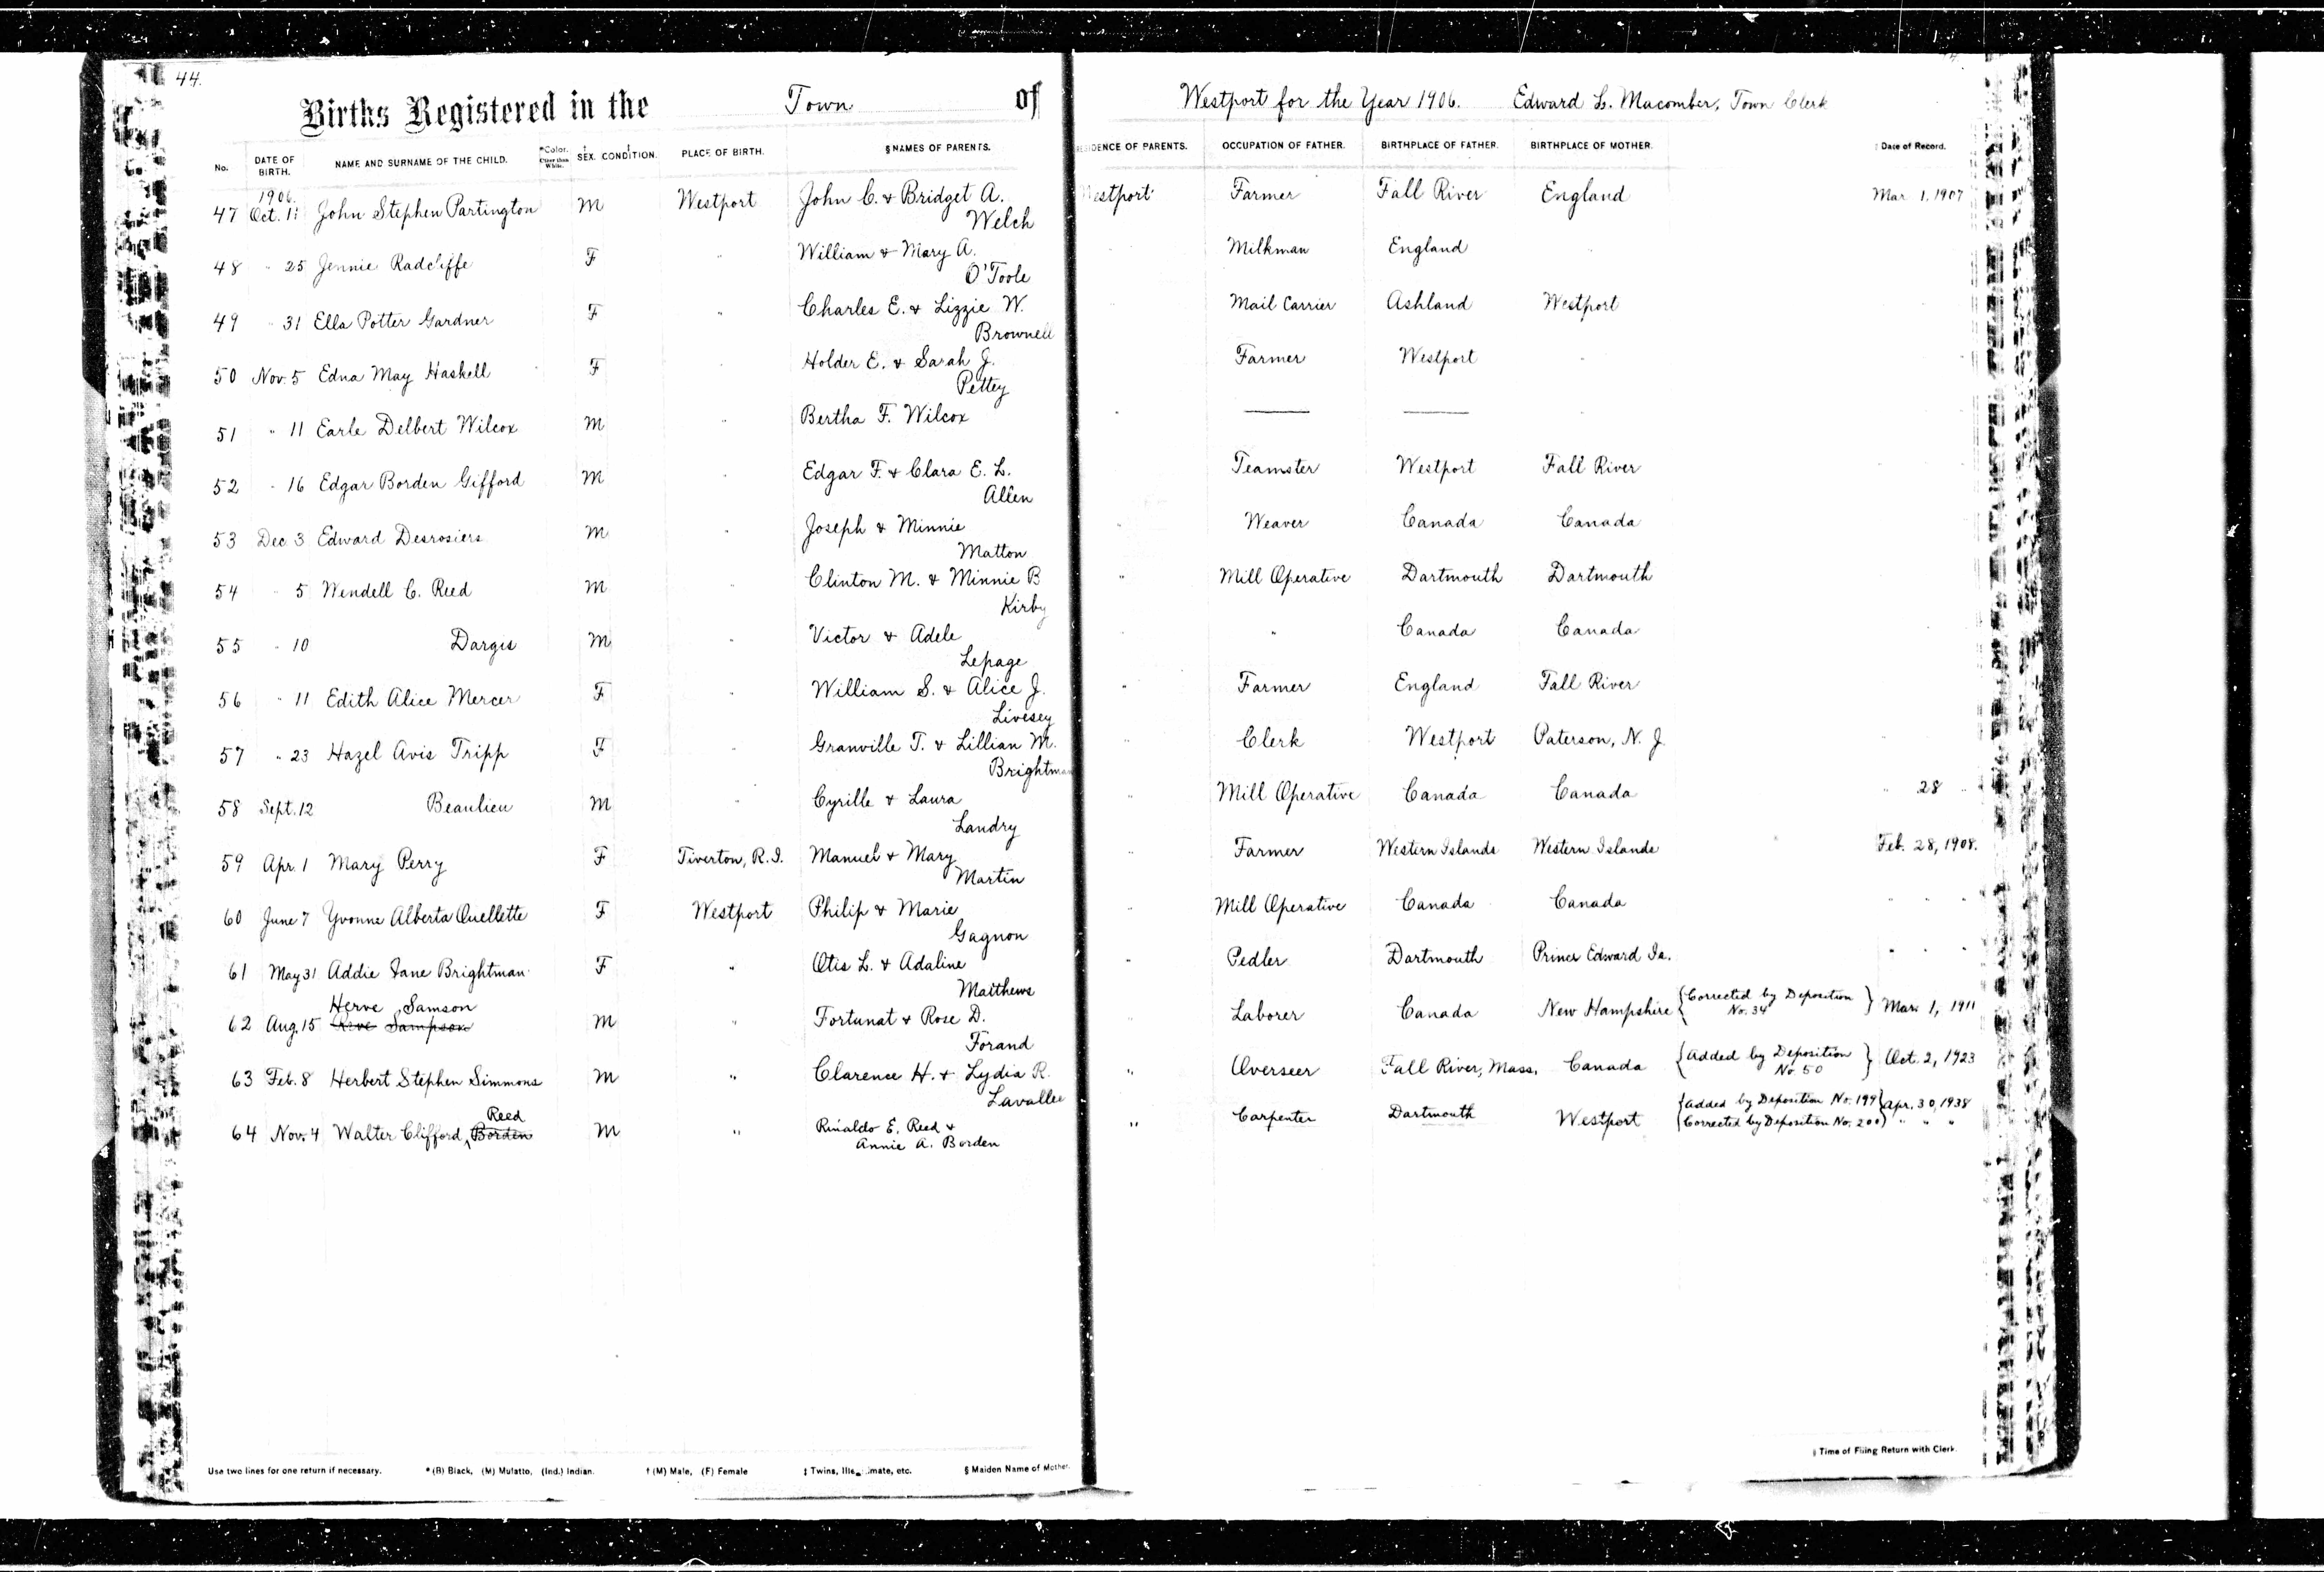 44.
Births Registered in the Town of Westport for the Year 1906. Edward L. Macomber, Town Clerk
No. DATE OF BIRTH. NAME AND SURNAME OF THE CHILD. *Color. Other than White. † SEX. ‡ CONDITION. PLACE OF BIRTH. § NAMES OF PARENTS. RESIDENCE OF PARENTS. OCCUPATION OF FATHER. BIRTHPLACE OF FATHER. BIRTHPLACE OF MOTHER. Date of Record.
1906.
47 Oct. 11 John Stephen Partington M Westport John C. & Bridget A. Westport Farmer Fall River England Mar 1, 1907
Welch
48 " 25 Jennie Radcliffe F " William & Mary A. Milkman England "
O'Toole
49 " 31 Ella Potter Gardner F " Charles E. & Lizzie W. Mail Carrier Ashland Westport
Brownell
50 Nov. 5 Edna May Haskell F " Holder E. & Sarah J. Farmer Westport "
Pettey
51 " 11 Earle Delbert Wilcox M " Bertha F. Wilcox " — — "
52 " 16 Edgar Borden Gifford M " Edgar F. & Clara E. L. Teamster Westport Fall River
Allen
53 Dec 3 Edward Desrosiers M " Joseph & Minnie " Weaver Canada Canada
Matton
54 " 5 Wendell C. Reed M " Clinton M. & Minnie B " Mill Operative Dartmouth Dartmouth
Kirby
55 " 10 Dargis M " Victor & Adele " " Canada Canada
Lepage
56 " 11 Edith Alice Mercer F " William S. & Alice J. " Farmer England Fall River
Livesey
57 " 23 Hazel Avis Tripp F " Granville T. & Lillian M. " Clerk Westport Paterson, N. J. "
Brightman
58 Sept. 12 Beaulieu M " Cyrille & Laura " Mill Operative Canada Canada " 28 "
Landry
59 Apr. 1 Mary Perry F Tiverton, R.I. Manuel & Mary " Farmer Western Islands Western Islands Feb. 28, 1908.
Martin
60 June 7 Yvonne Alberta Ouellette F Westport Philip & Marie " Mill Operative Canada Canada " " "
Gagnon
61 May 31 Addie Jane Brightman F " Otis L. & Adaline " Pedler Dartmouth Prince Edward Is. " " "
Matthews
Herve Samson
62 Aug. 15 Sampson M " Fortunat & Rose D. Laborer Canada New Hampshire {Corrected by Deposition No. 34} Mar. 1, 1911
Forand
63 Feb. 8 Herbert Stephen Simmons M " Clarence H. & Lydia R. " Overseer Fall River, Mass. Canada {Added by Deposition No. 50} Oct. 2, 1923
Lavallee
Reed
64 Nov. 4 Walter Clifford Borden M " Rinaldo E. Reed & " Carpenter Dartmouth Westport {Added by Deposition No. 199} Apr. 30, 1938
Annie A. Borden (Corrected by Deposition No. 200) " " "
Use two lines for one return if necessary. *(B) Black, (M) Mulatto, (Ind.) Indian. † (M) Male, (F) Female ‡ Twins, Illegitimate, etc. § Maiden Name of Mother. Time of Filing Return with Clerk.